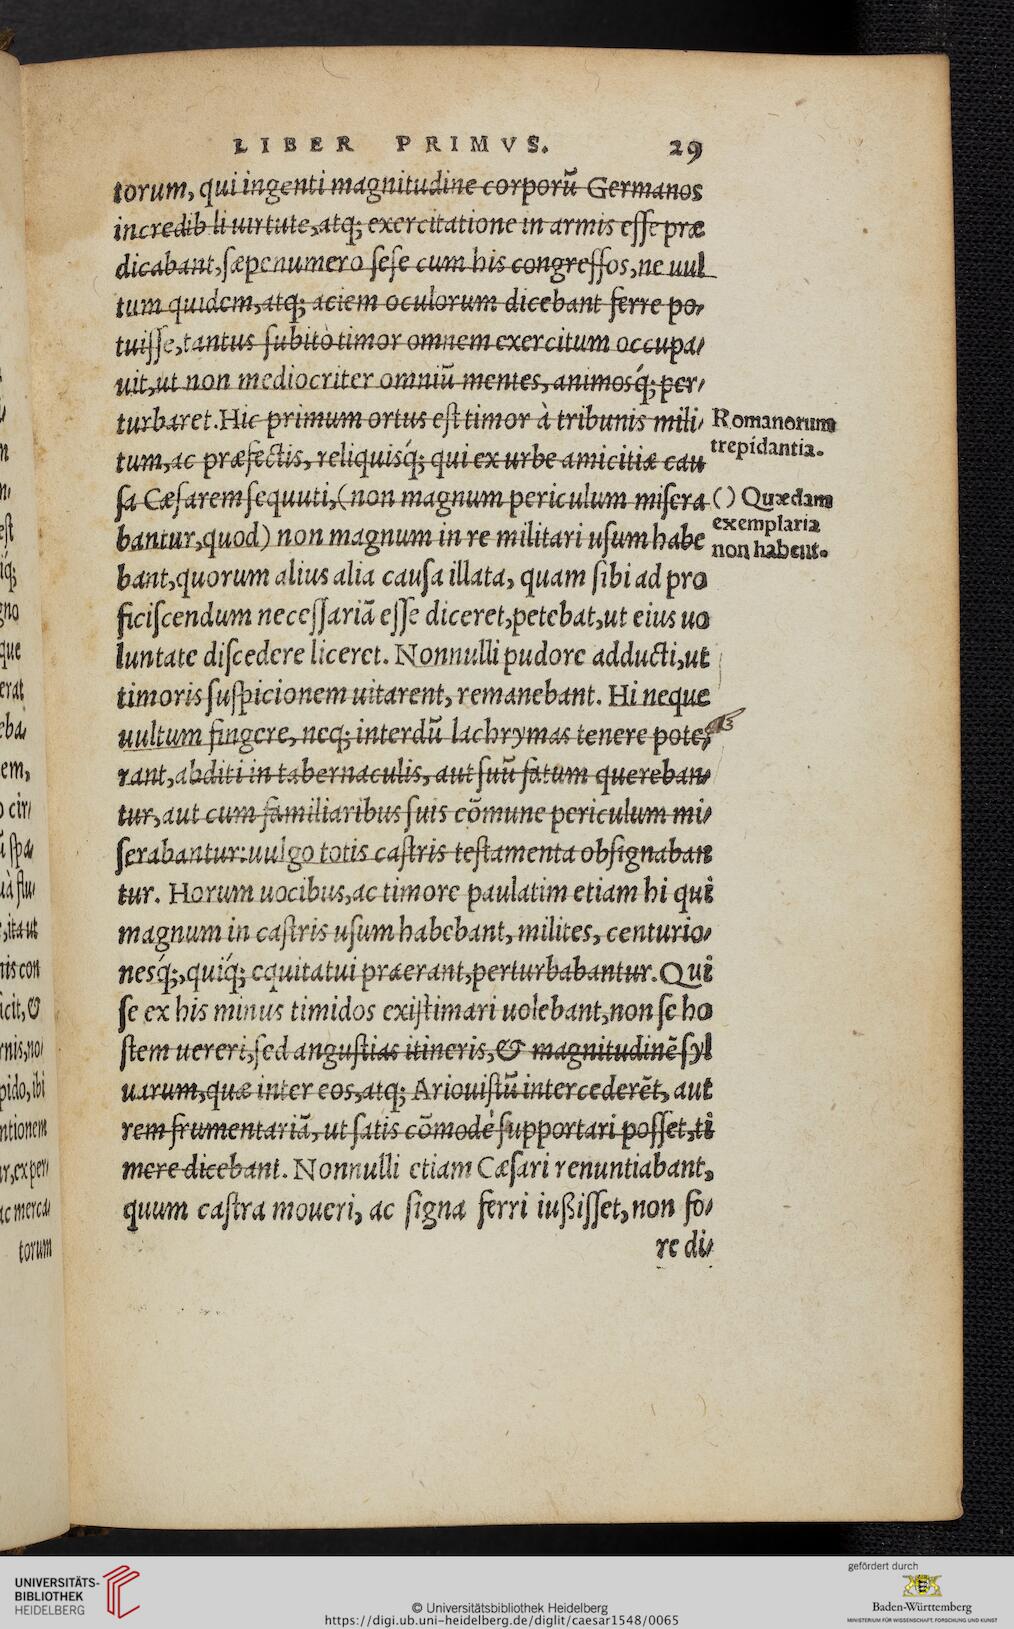 LIBER PRIMVS. 29
torum, qui ingenti magnitudine corporū Germanos
incredib li uirtute, atq; exercitatione in armis esse præ
dicabant, sæpenumero sese cum his congressos, ne uul
tum quidem, atq; aciem oculorum dicebant ferre po⸗
tuisse, tantus subitò timor omnem exercitum occupa⸗
uit, ut non mediocriter omniū mentes, animosq́; per⸗
turbaret. Hic primum ortus est timor à tribunis mili⸗
tum, ac præfectis, reliquisq́; qui ex urbe amicitiæ cau
sa Cæsarem sequuti, (non magnum periculum misera
bantur, quod) non magnum in re militari usum habe
bant, quorum alius alia causa illata, quam sibi ad pro
ficiscendum necessariā esse diceret, petebat, ut eius uo
luntate discedere liceret. Nonnulli pudore adducti, ut
timoris suspicionem uitarent, remanebant. Hi neque
uultum fingere, neq; interdū lachrymas tenere pote⸗
rant, abditi in tabernaculis, aut suū fatum quereban⸗
tur, aut cum familiaribus suis cōmune periculum mi⸗
serabantur: uulgo totis castris testamenta obsignaban
tur. Horum uocibus, ac timore paulatim etiam hi qui
magnum in castris usum habebant, milites, centurio⸗
nesq́;, quiq́; equitatui praeerant, perturbabantur. Qui
se ex his minus timidos existimari uolebant, non se ho
stem uereri, sed angustias itineris, & magnitudinē syl
uarum, quæ inter eos, atq; Ariouistū intercederēt, aut
rem frumentariā, ut satis cōmodè supportari posset, ti
mere dicebant. Nonnulli etiam Cæsari renuntiabant,
quum castra moueri, ac signa ferri iußisset, non fo⸗
re di⸗
Romanorum
trepidantia.
() Quædam
exemplaria
non habent.
est
q;
gno
que
erat
eba⸗
em,
cir⸗
spa⸗
flu⸗
, ita ut
nis con
icit, &
rnis, no⸗
pido, ibi
ntionem
r, ex per⸗
ac merca⸗
torum
UNIVERSITÄTS-
BIBLIOTHEK
HEIDELBERG
© Universitätsbibliothek Heidelberg
https://digi.ub.uni-heidelberg.de/diglit/caesar1548/0065
gefördert durch
Baden-Württemberg
MINISTERIUM FÜR WISSENSCHAFT, FORSCHUNG UND KUNST